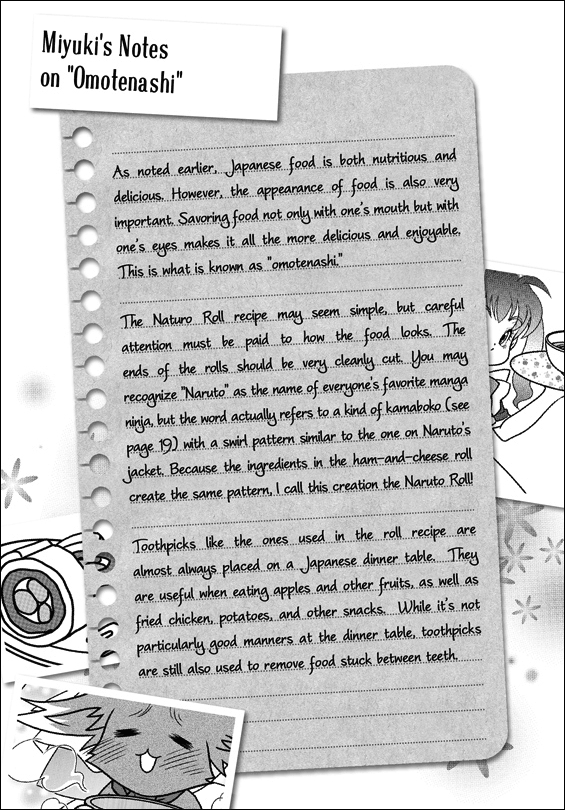 Miyuki's Notes
on "Omotenashi"
As noted earlier, Japanese food is both nutritious and
delicious. However, the appearance of food is also very
important. Savoring food not only with one's mouth but with
one's eyes makes it all the more delicious and enjoyable.
This is what is known as "omotenashi."
The Naturo Roll recipe may seem simple, but careful
attention must be paid to how the food looks. The
ends of the rolls should be very cleanly cut. You may
recognize "Naruto" as the name of everyone's favorite manga
ninja, but the word actually refers to a kind of kamaboko (see
page 19) with a swirl pattern similar to the one on Naruto's
jacket. Because the ingredients in the ham-and-cheese roll
create the same pattern, I call this creation the Naruto Roll!
Toothpicks like the ones used in the roll recipe are
almost always placed on a Japanese dinner table. They
are useful when eating apples and other fruits, as well as
fried chicken, potatoes, and other snacks. While it's not
particularly good manners at the dinner table, toothpicks
are still also used to remove food stuck between teeth.